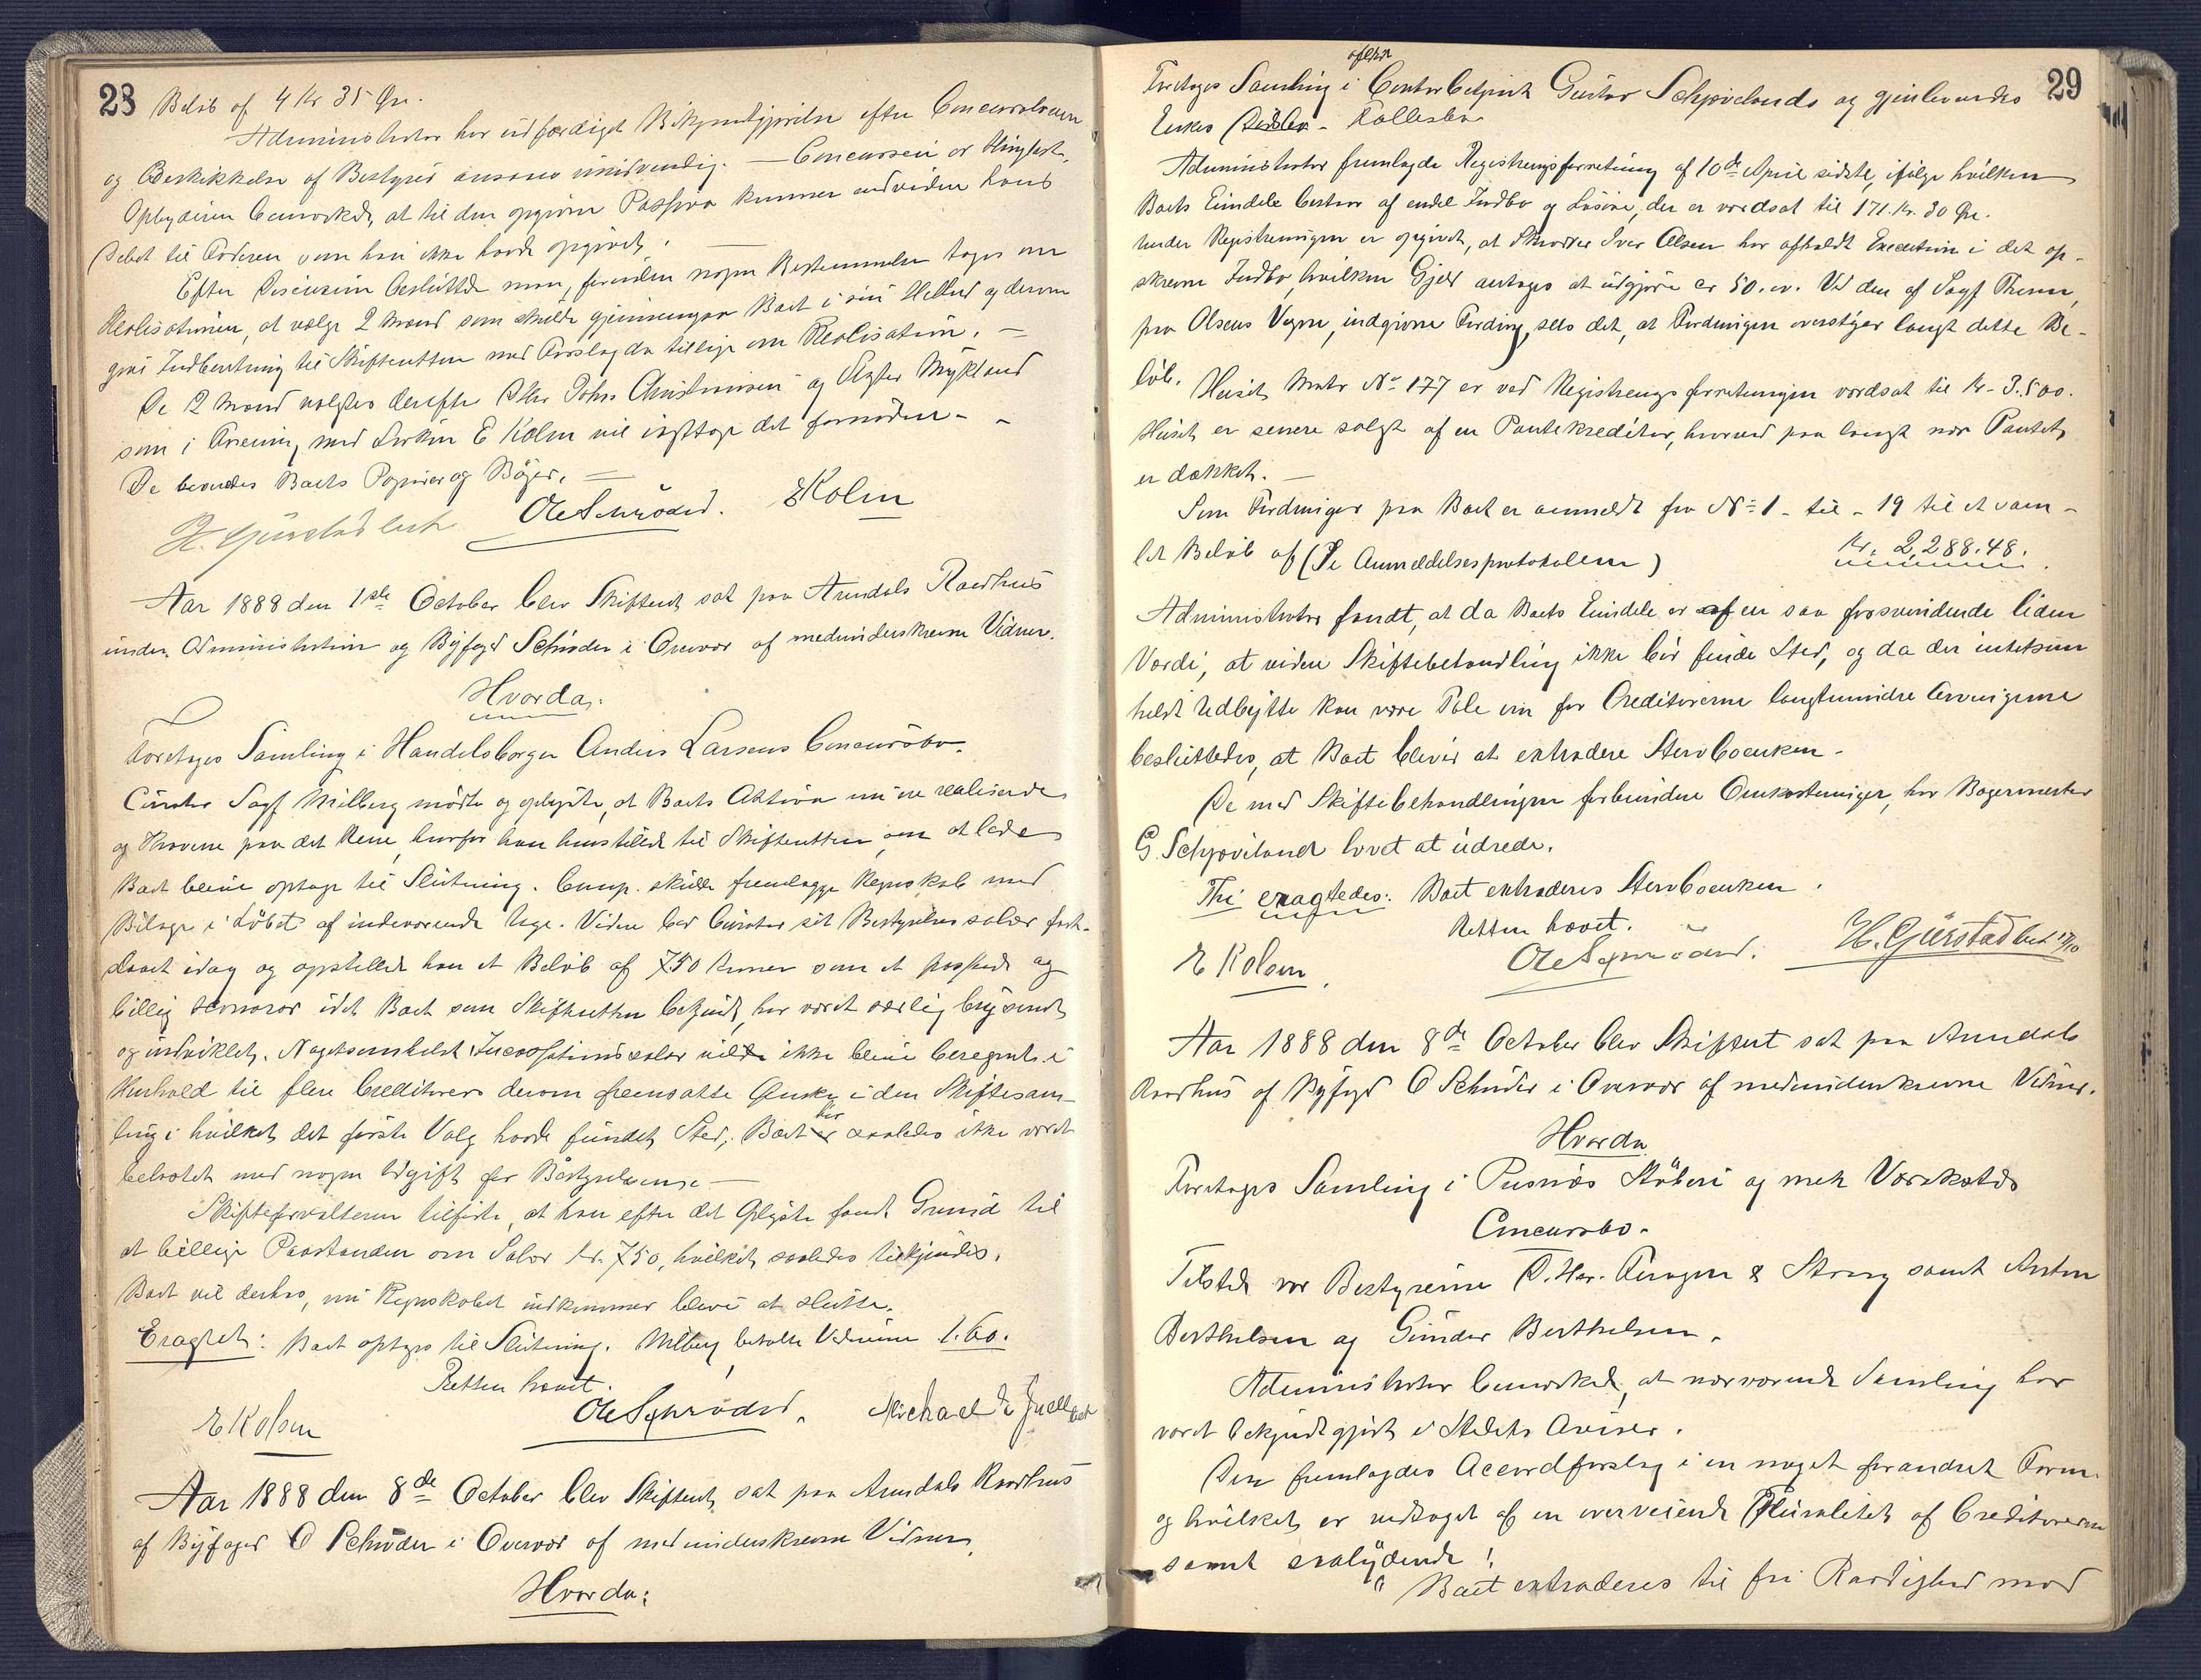 28
Beløb af 4 Kr 35 Øre.
Administrator har udfærdiget Bekjendtgjørelse efter Concursloven
og Beskikkelse af Bestyrer ansees unødvendig. — Concursen er thinglæst.
Opbyderen bemærkede, at til den opgivne Passiva kommer endvidere hans
Debet til Faderen som han ikke havde opgivet. —
Efter Discussion besluttede man, forinden nogen Bestemmelse tages om
Realisationen, at vælge 2 Mænd som skulde gjennemgaa Boet i sin Helhed og derom
give Indberetning til Skifteretten med Forslag da tillige om Realisation. —
De 2 Mænd valgtes derefter Hr Johs Christensen og Mykland
som i Forening med E Kolm vil iagttage det fornødne. —
De beroedes Boets Papirer og Bøger. —
H. Gjerstad
O Schrøder. E Kolm
Aar 1888 den 1ste October blev Skifteret sat paa Arendals Raadhus
under Administration og Byfoged Schrøder i Overvær af medunderskrevne Vidner.
Hvorda:
Foretoges Samling i Handelsborger Anders Larsens Concursbo.
Curator Sagf Milberg mødte og oplyste, at Boets Aktiva nu ere realiserede
og Kravene paa det Rene, hvorfor han henstillede til Skifteretten om at lade
Boet blive optage til Slutning. Comp. skulde fremlægge Regnskab med
Bilage i Løbet af indeværende Uge. Videre bad Curator sit Bestyrelsessalær fast-
slaaet idag og opstillede han et Beløb af 750 Kroner som et passende og
billig Honorar idet Boet som Skifteretten bekjendt, har været særlig brysomt
og indviklet. Nogetsomhelst Incassationssalær vilde ikke blive beregnet i
Henhold til flere Creditorers derom fremsatte Ønske i den Skiftesam-
ling i hvilket det første Valg havde fundet Sted; Boet har saaledes ikke været
belastet med nogen Udgift for Bestyrelsen. —
Skifteforvalteren tilførte, at han efter det Oplyste fandt Grund til
at billige Paastanden om Salær Kr. 750, hvilket saaledes tilkjendes.
Boet vil derhos, naar Regnskabet indkommer blive at slutte.
Eragtet: Boet optages til Slutning. Milberg betalte Vidnerne 1.60.
Retten hævet.
E Kolm O Schrøder. Michael Juell
Aar 1888 den 8de October blev Skifteret sat paa Arendals Raadhus
af Byfoged O Schrøder i Overvær af medunderskrevne Vidner,
Hvorda:
29
afdøde
Foretoges Samling i Contorbetjent Gustav Schjøvelands og gjenlevendes
Enkes Fallesbo
Administrator fremlagde Registreringsforretning af 10de April sidste, ifølge hvilken
Boets Eiendele bestaar af endel Indbo og Løsøre, der er værdsat til 171 Kr. 30 Øre.
Under Registreringen er opgivet, at Skrædder Iver Olsen har afholdt Execution i det op-
skrevne Indbo, hvilken Gjæld antages at udgjøre ca 50. Ved den af Sagf Thesen,
paa Olsens Vegne, indgivne Fordring, sees det, at Fordringen overstiger langt dette Be-
løb.
Huset Matr No 177 er ved Registreringsforretningen værdsat til Kr. 3.500.
Huset er senere solgt af en Pantekreditor, hvorved paa langt nær Pantet
er dækket. —
Som Fordringer paa Boet er anmeldt fra No 1 - til - 19 til et sam-
let Beløb af (Se Anmeldelsesprotokolen) Kr. 2,288.48.
Administrator fandt, at da Boets Eiendele er af en saa forsvindende liden
Værdi, at videre Skiftebehandling ikke bør finde Sted, og da der intetsom
helst Udbytte kan være Tale om for Creditorerne langtmindre Arvingerne
besluttedes, at Boet bliver at extradere Stervboenken.
De med Skiftebehandlingen forbundne Omkostninger, har Bagermester
G. Schjøveland lovet at udrede.
Thi eragtedes: Boet extraderes Stervboenken.
Retten hævet.
E Kolm O Schrøder. H. Gjerstad
Aar 1888 den 8de October blev Skifteret sat paa Arendals
Raadhus af Byfoged O Schrøder i Overvær af medunderskrevne Vidner.
Hvorda
Foretoges Samling i Pusnæs Støberi og mek Værksteds
Concursbo.
Tilstede var Bestyrerne samt Anton
Berthelsen og Gunder Berthelsen.
Administrator bemærkede, at nærværende Samling har
været bekjendtgjort i Stedets Aviser.
Der fremlagdes Accordforslag i en noget forandret Form
og hvilket er vedtaget af en overveiende Pluralitet af Creditorerne
samt saalydende!
"Boet extraderes til fri Raadighed mod